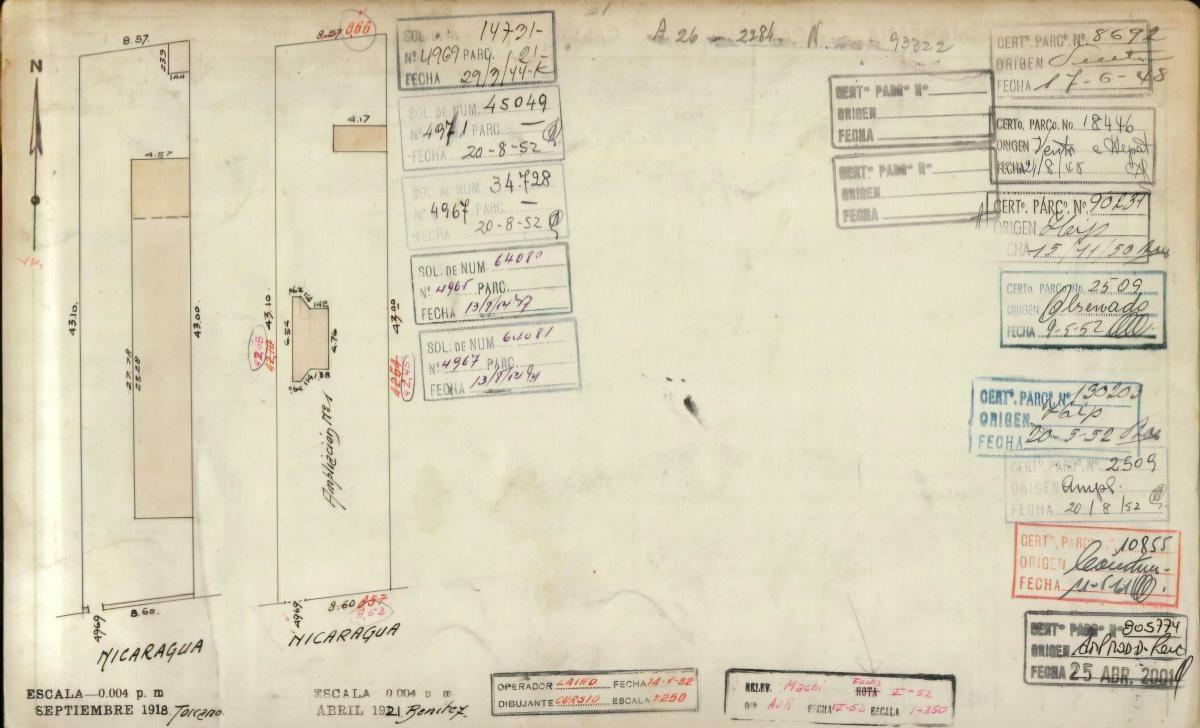 8.57.
2.39
1.44
N
4.57
43.10.
43.00
25.28
4969
8.60.
NICARAGUA
ESCALA—0.004 p. m
SEPTIEMBRE 1918 Torcano.
8.57. 866
4.17
43.10.
43.00
6.54
4.76
142
138
42.45
Ampliación Nº 1
4969
8.60 857
8.52
NICARAGUA
ESCALA 0 004 p m
ABRIL 1921 Benitez
SOL. DE N.
14731-
Nº 4969 PARC. 21-
FECHA 29/3/44-K
SOL. DE NUM. 45049
Nº 4971 PARC. —
FECHA 20-8-52
SOL. DE NUM. 34.728
Nº 4967 PARC. —
FECHA 20-8-52
SOL. DE NUM 64080
Nº 4965 PARC.
FECHA 13/8/
SOL. DE NUM 64081
Nº 4967 PARC.
FECHA 13/8/
A 26 — 2284. N. 93822
CERTº PARCº Nº
ORIGEN
FECHA
CERTº PARCº Nº
ORIGEN
FECHA
CERTº. PARCº. Nº. 8692
ORIGEN
FECHA 17-6-48
CERTO. PARCO. No. 18446
ORIGEN Venta e Hipot
FECHA 21/8/48
CERTº. PARCº. Nº. 90231
ORIGEN Hip
CHA 15/11/50
CERTO. PARCO. No. 2509
ORIGEN Observado
FECHA 9-5-52
CERTº. PARCº. Nº 130203
ORIGEN Hip
FECHA 20-5-52
CERTº. PARCº. Nº. 2509
ORIGEN Ampl.
FECHA 20/8/52
CERTº. PARCº. Nº. 10855
ORIGEN
FECHA
CERTº PARCº Nº 805774
ORIGEN
FECHA 25 ABR. 2001
OPERADOR LAINO FECHA 14-V-52
DIBUJANTE CURSIO ESCALA 1-250
RELEV. Machi Fecha NOTA V-52
DIB. FECHA IV-52 ESCALA 1-250